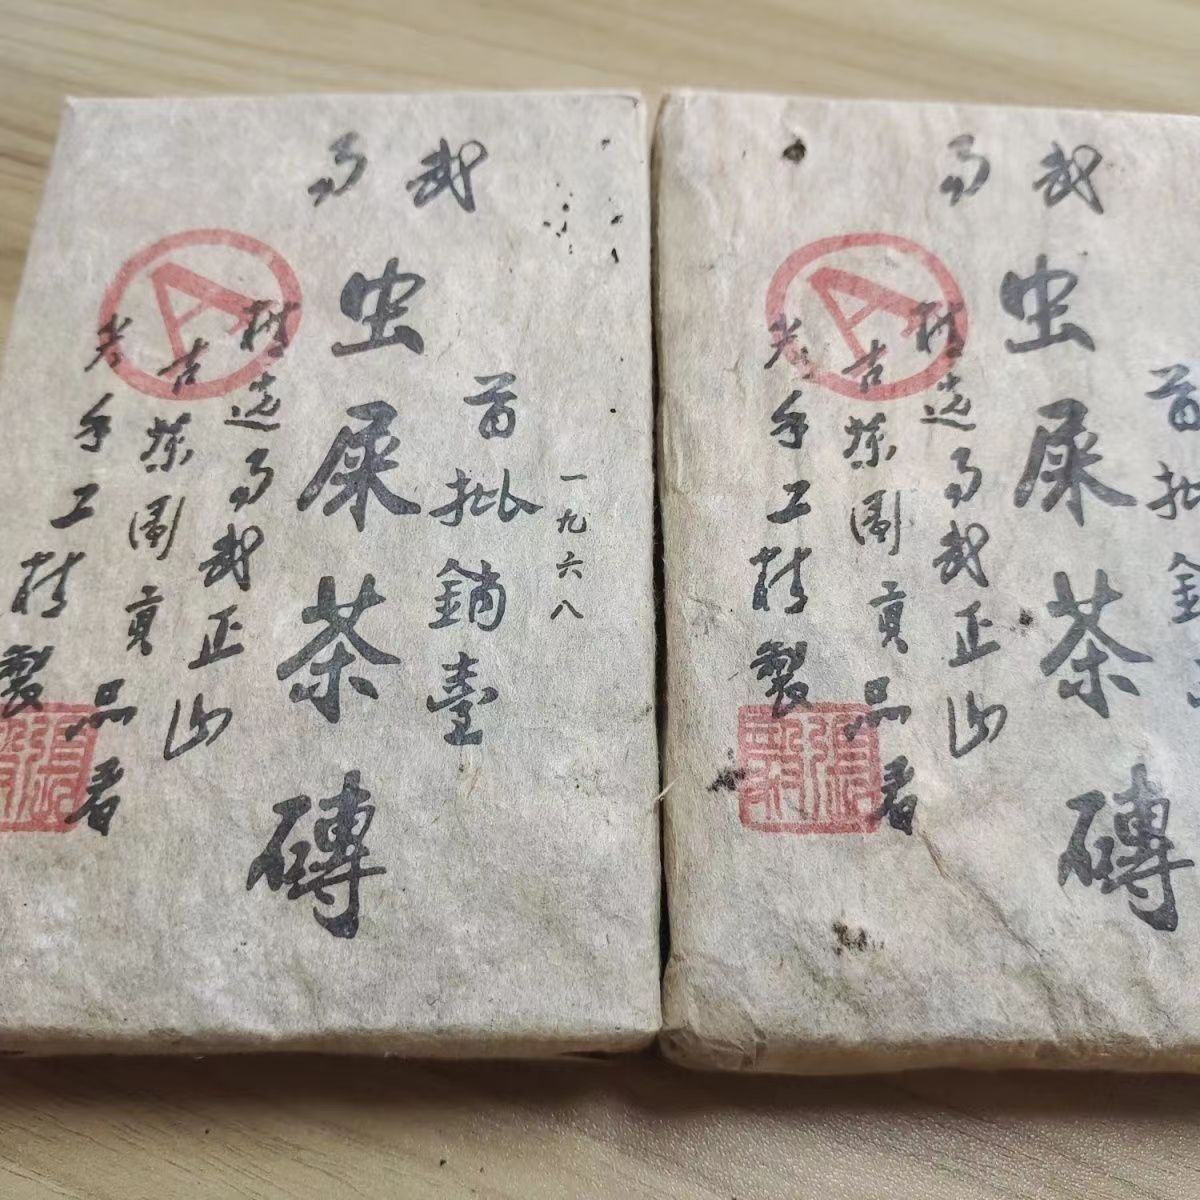 易武
一九六八
首批銷臺
虫屎茶磚
精选易武正山
古茶園貢品春
尖手工精製
A
易武
首批
虫屎茶磚
精选易武正山
古茶園貢品春
尖手工精製
A